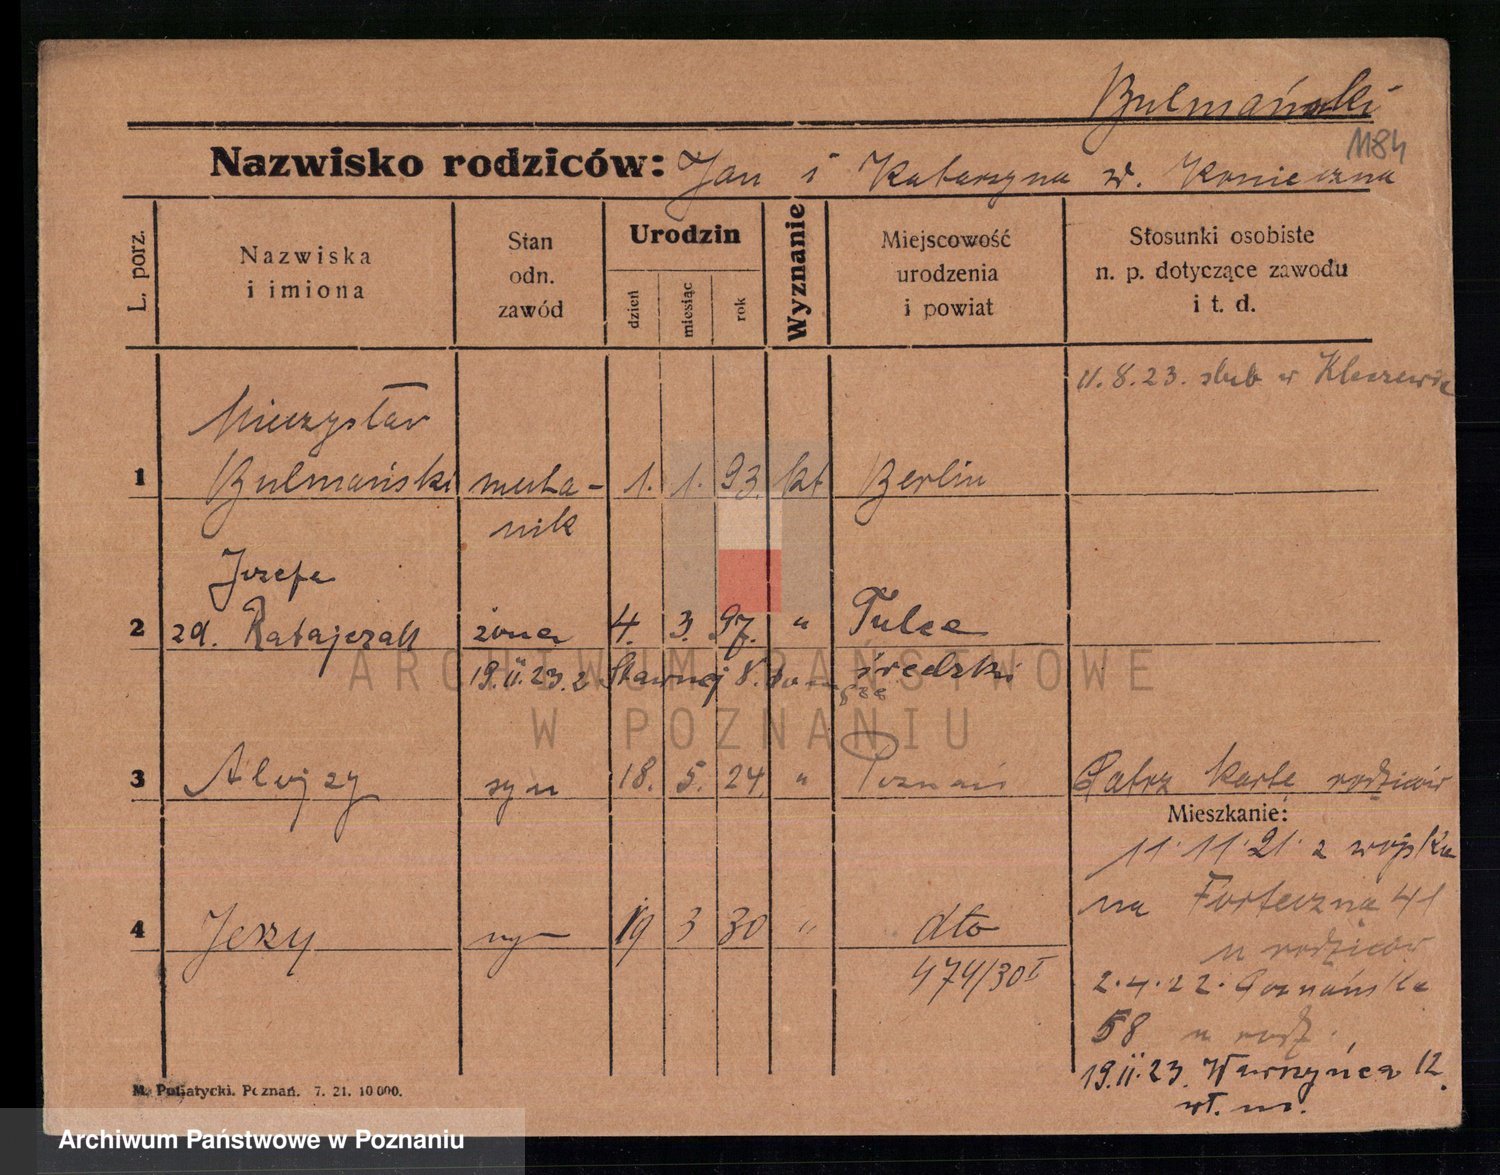 Bulmański
1184
Nazwisko rodziców: Jan i Katarzyna z d. Konieczna
L. porz.
Nazwiska
i imiona
Stan
odn.
zawód
Urodzin
dzień
miesiąc
rok
Wyznanie
Miejscowość
urodzenia
i powiat
Stosunki osobiste
n. p. dotyczące zawodu
i t. d.
11.8.23. ślub w
Mieczysław
1 Bulmański mecha- 1. 1. 93. kat Berlin
nik
Józefa
2 zd. Ratajczak żona 4. 3. 97. " Tulce
19.II.23. z Sławnej 8. średzki
3 Alojzy syn 18. 5. 24. " Poznań Patrz kartę rodziców
Mieszkanie:
11.11.21. z wojska
na Forteczną 41
u rodziców
4 Jerzy syn 19 3 30 " dto
474/30 I
2.4.22. Poznańska
58 u rodz.
19.II.23. Wawrzyńca 12.
wł. m.
M. Pufiatycki. Poznań. 7. 21. 10000.
ARCHIWUM PAŃSTWOWE
W POZNANIU
Archiwum Państwowe w Poznaniu